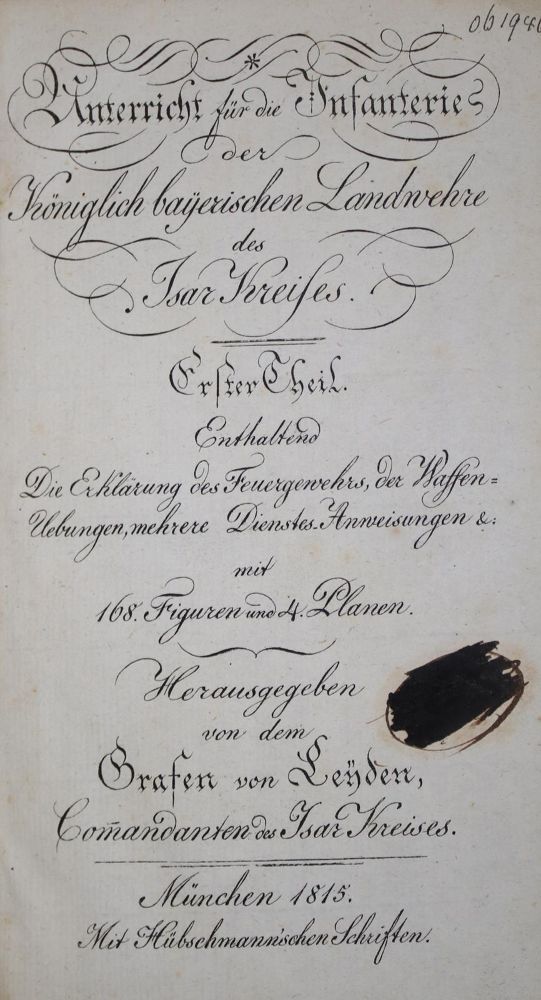 ob 1946
*
Unterricht für die Infanterie
der
Königlich baÿerischen Landwehre
des
Isar Kreises.
Erster Theil.
Enthaltend
Die Erklärung des Feuergewehrs, der Waffen=
Uebungen, mehrere Dienstes-Anweisungen &:
mit
168. Figuren und 4. Planen.
Herausgegeben
von dem
Grafen von Leÿden,
Com̅andanten des Isar Kreises.
München 1815.
Mit Hübschmann'schen Schriften.